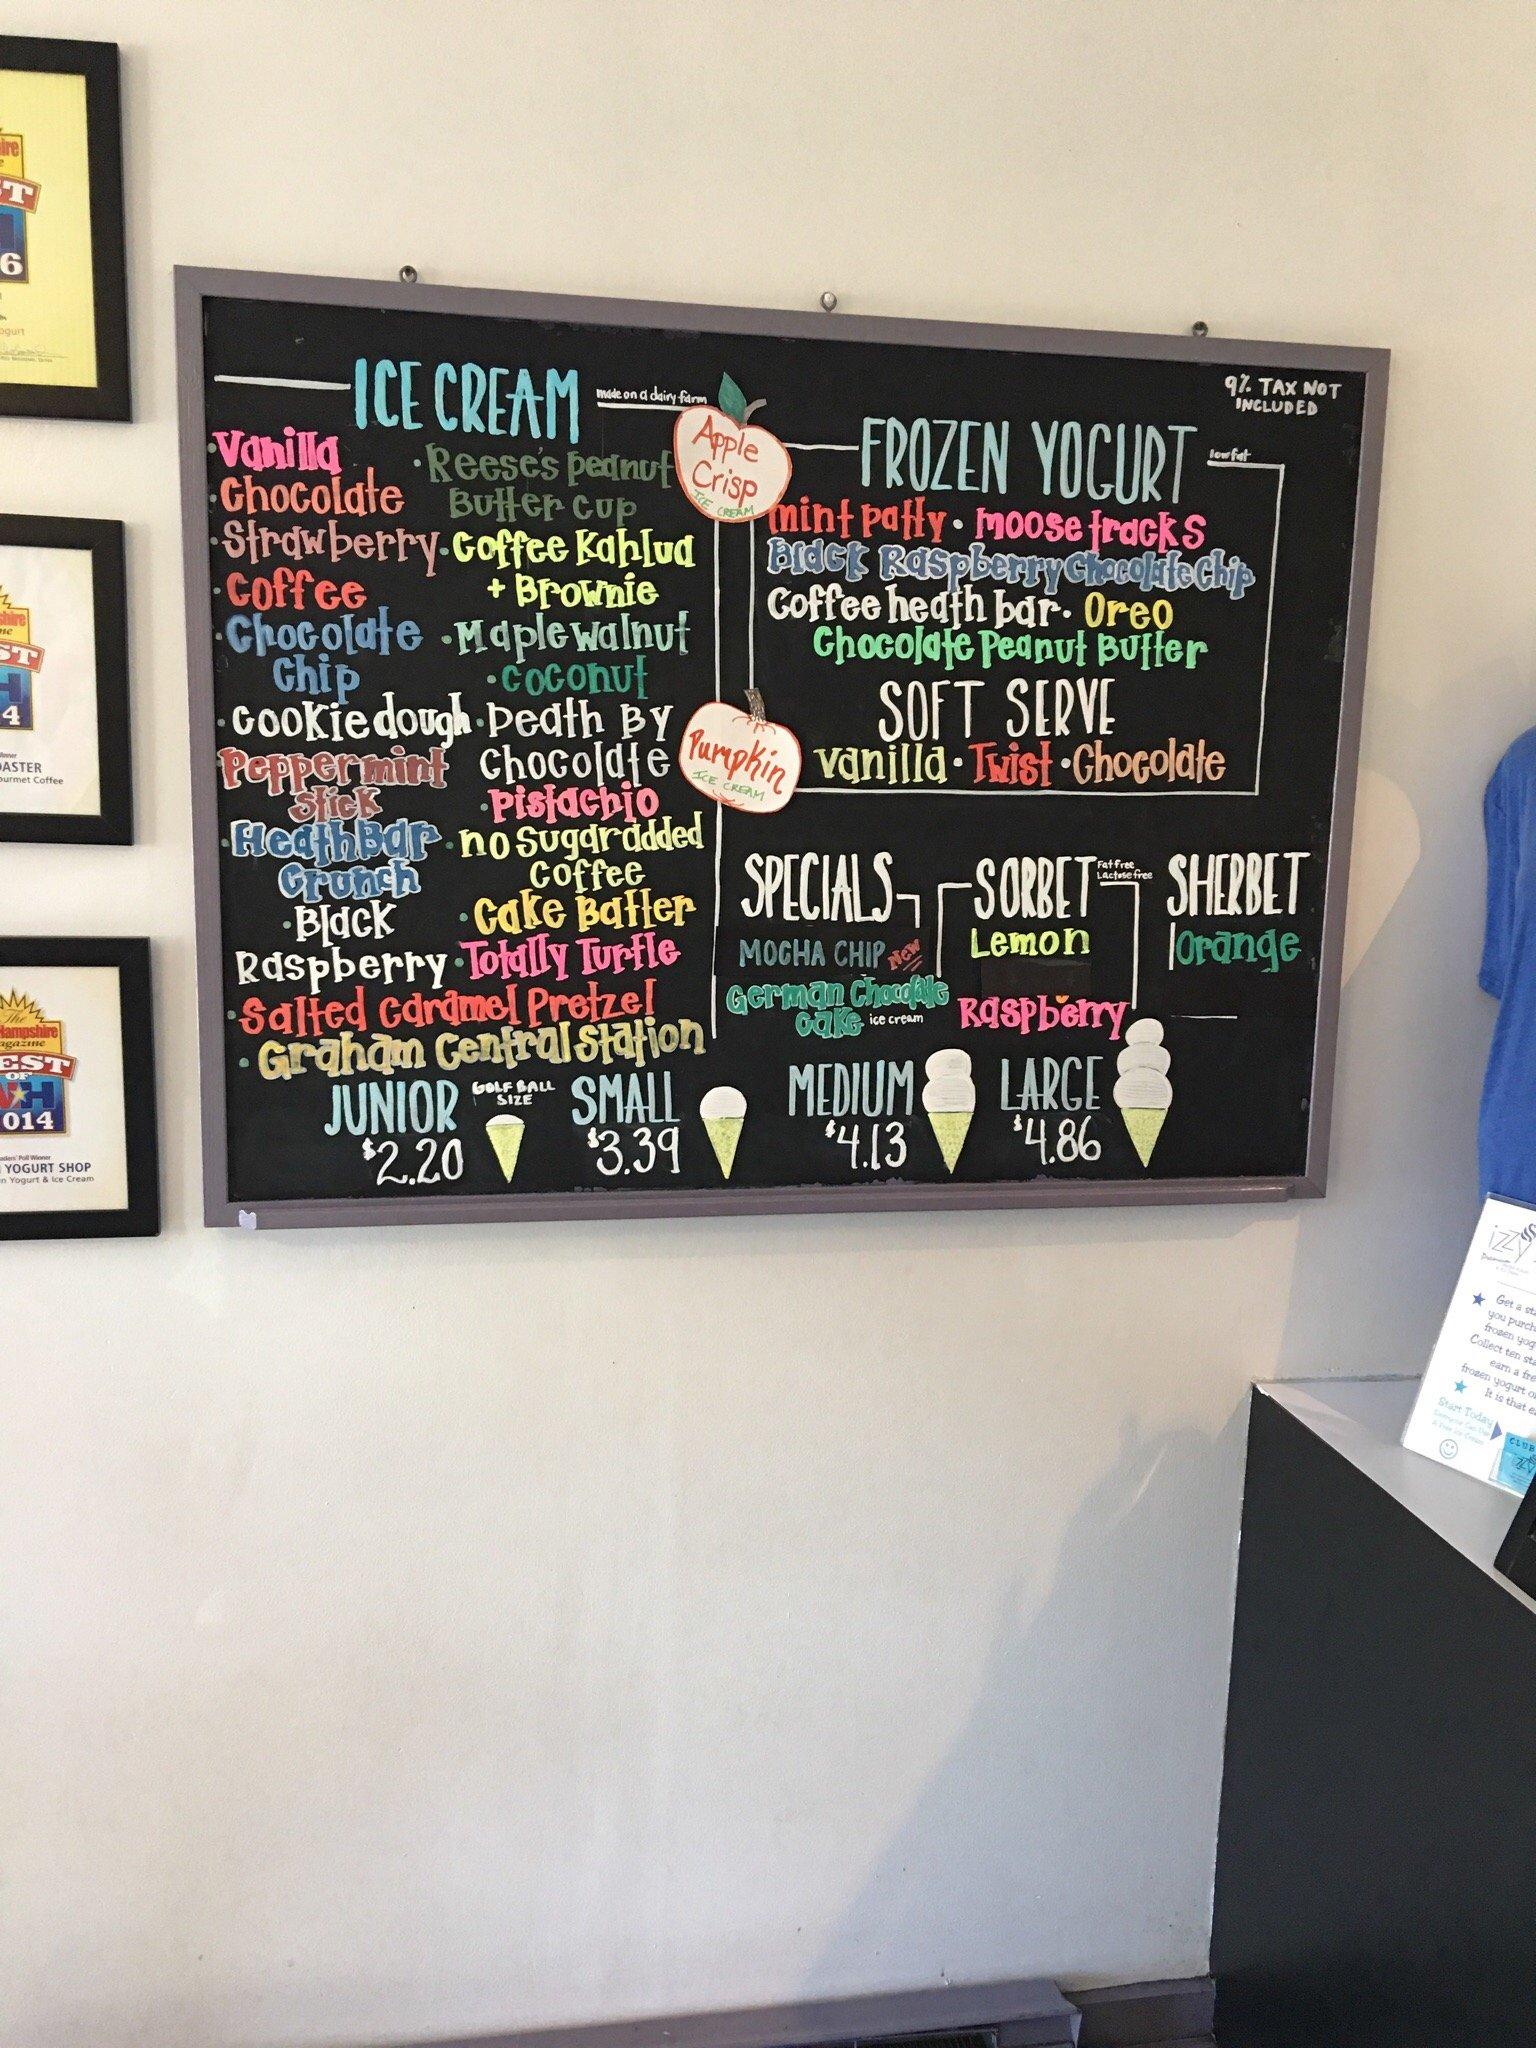 ICE CREAM
made on a dairy farm
• Vanilla
• Chocolate
• Strawberry
• Coffee
• Chocolate
Chip
• Cookie dough
Peppermint
Stick
• Heath Bar
Crunch
• Black
Raspberry
• Salted Caramel Pretzel
• Graham Central Station
• Reese's peanut
Butter cup
• Coffee Kahlua
+ Brownie
• Maple walnut
• coconut
• Death By
Chocolate
• Pistachio
• no Sugar added
Coffee
• Cake Batter
• Totally Turtle
Apple
Crisp
ICE CREAM
Pumpkin
ICE CREAM
9% TAX NOT
INCLUDED
FROZEN YOGURT
lowfat
mint patty • moose tracks
Black Raspberry Chocolate Chip
Coffee heath bar • Oreo
Chocolate Peanut Butter
SOFT SERVE
vanilla • Twist • Chocolate
SPECIALS
MOCHA CHIP New
German Chocolate
Cake ice cream
SORBET
Fat free
Lactose free
Lemon
Raspberry
SHERBET
Orange
JUNIOR
GOLF BALL
SIZE
$2.20
SMALL
$3.39
MEDIUM
$4.13
LARGE
$4.86
6
ogurt
4
OASTER
ourmet Coffee
The
Hampshire
agazine
EST
OF
NH
014
aders' Poll Winner
N YOGURT SHOP
n Yogurt & Ice Cream
izzy
Get a sta
you purch
frozen yog
Collect ten sta
earn a fre
frozen yogurt o
It is that ea
Start Today
CLUB